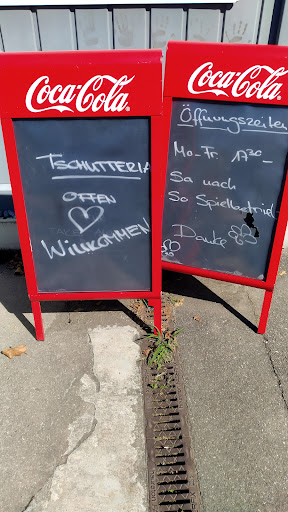 Coca-Cola
TSCHUTTERIA
OFFEN
WILLKOMMEN
Coca-Cola
Öffnungszeiten
Mo-Fr. 17³⁰-
Sa nach
So Spielbetrieb
Danke